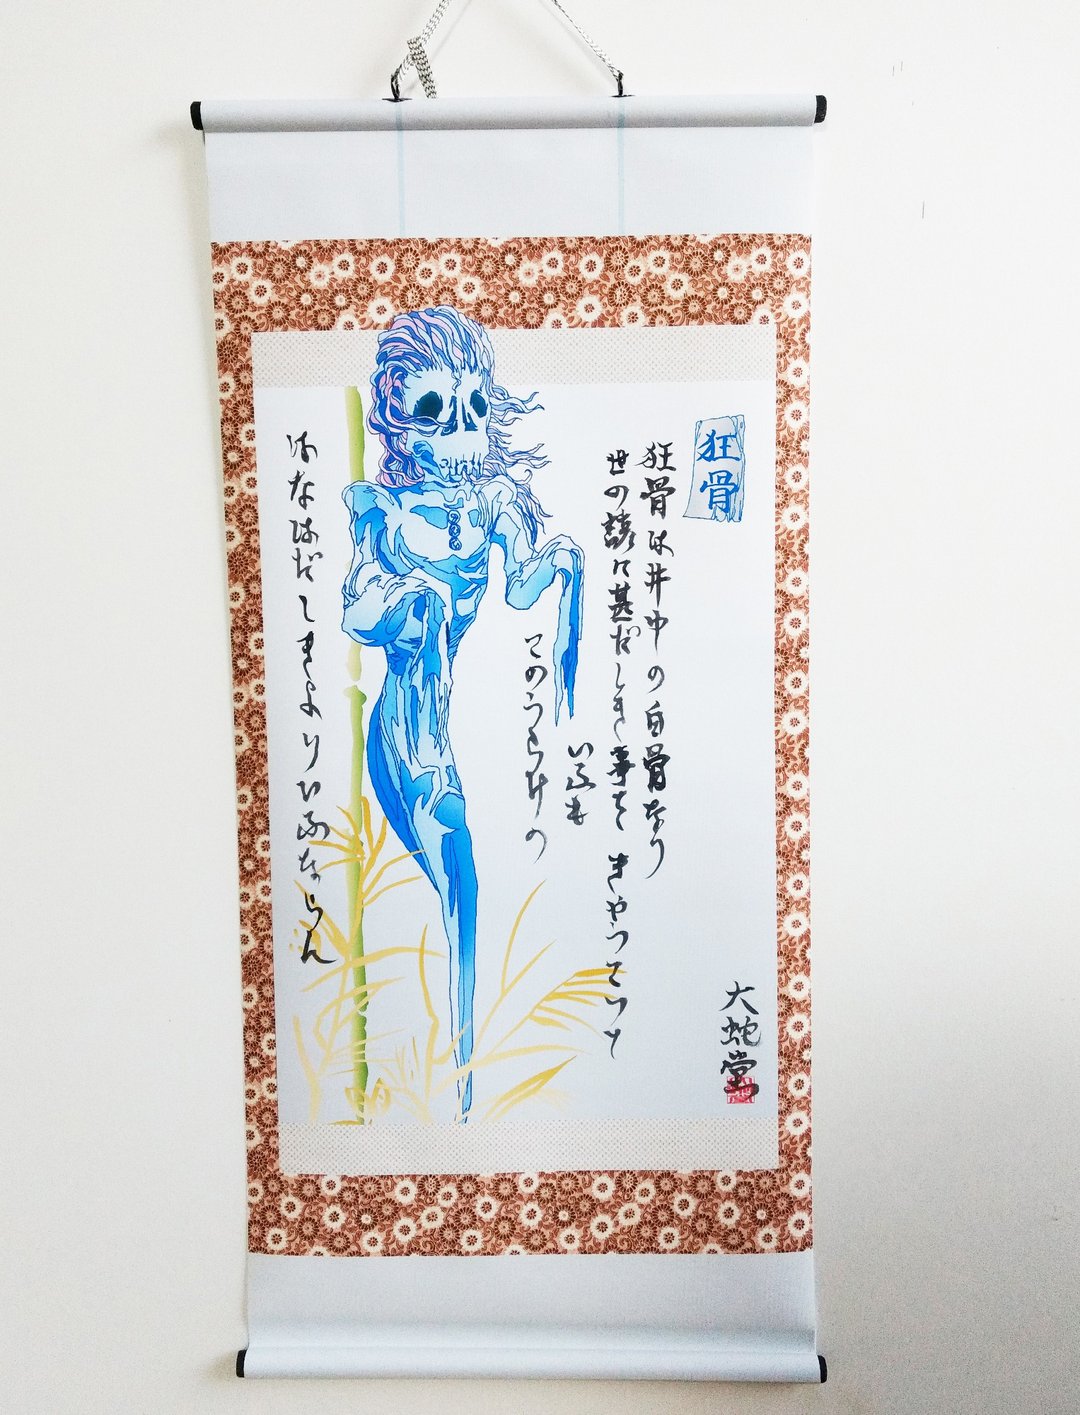 狂骨
狂骨は井中の白骨なり
世の諺に甚だしき事を きやうこつと
いふも
このうらみの
はなはだしきよりいふならん
大蛇堂